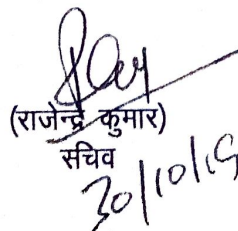 (राजेन्द्र कुमार)
सचिव
30/10/19